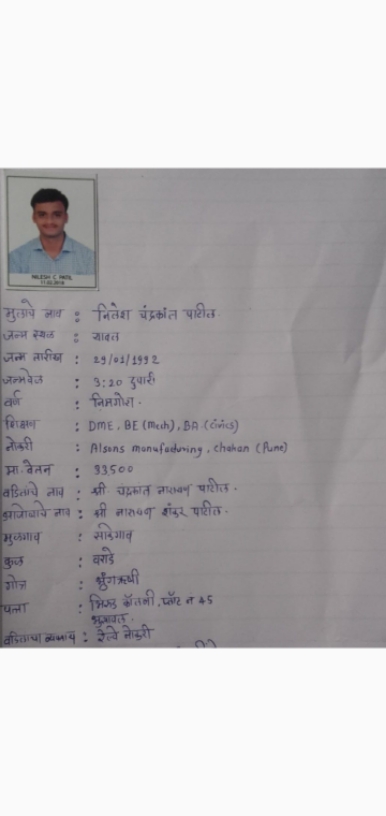 NILESH C. PATIL
17.02.2018
मुलाचे नाव : निलेश चंद्रकांत पाटील.
जन्म स्थळ : यावल
जन्म तारीख : 29/01/1992
जन्मवेळ : 3:20 दुपारी
वर्ण : निमगोरा.
शिक्षण : DME, BE (Mech), BA (Civics)
नोकरी : Alsons manufacturing, Chakan (Pune)
मा. वेतन : 33500
वडिलांचे नाव : श्री. चंद्रकांत नारायण पाटील.
आजोबाचे नाव : श्री नारायण शंकर पाटील.
मुळगाव : साकेगाव
कुळ : वराडे
गोत्र : श्रृंगऋषी
पत्ता : कॉलनी, प्लॉट नं 45
भुसावल.
वडिलांचा व्यवसाय : रेल्वे नोकरी